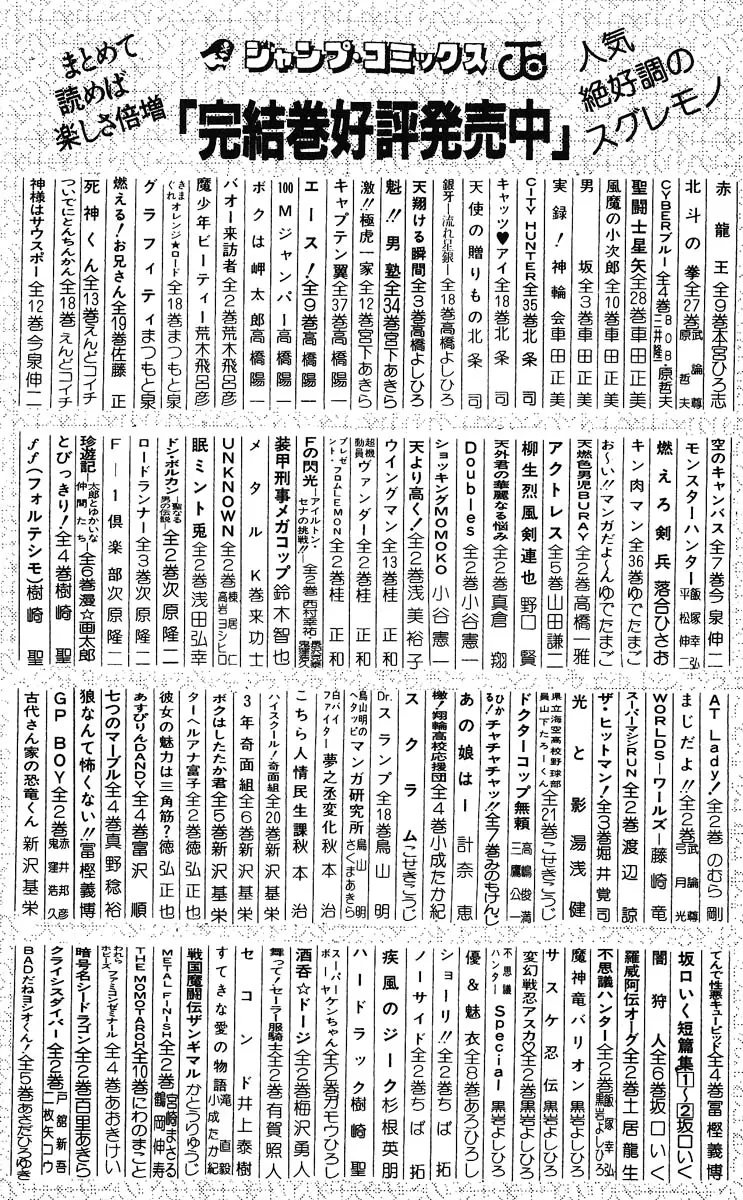 まとめて
読めば
楽しさ倍増
ジャンプ・コミックス
人気
絶好調の
スグレモノ
「完結巻好評発売中」
赤龍王 全9巻 本宮ひろ志
北斗の拳 全27巻 武論尊 原哲夫
CYBERブルー 全4巻 BOB 三井隆一 原哲夫
聖闘士星矢 全28巻 車田正美
風魔の小次郎 全10巻 車田正美
男坂 全3巻 車田正美
実録!神輪会 車田正美
CITY HUNTER 全35巻 北条司
キャッツ♥アイ 全18巻 北条司
天使の贈りもの 北条司
銀牙―流れ星 銀― 全18巻 高橋よしひろ
天翔ける瞬間 全3巻 高橋よしひろ
魁!!男塾 全34巻 宮下あきら
激!!極虎一家 全12巻 宮下あきら
キャプテン翼 全37巻 高橋陽一
エース! 全9巻 高橋陽一
100Mジャンパー 高橋陽一
ボクは岬太郎 高橋陽一
バオー来訪者 全2巻 荒木飛呂彦
魔少年ビーティー 荒木飛呂彦
きまぐれオレンジ★ロード 全18巻 まつもと泉
グラフィティ まつもと泉
燃える!お兄さん 全19巻 佐藤正
死神くん 全13巻 えんどコイチ
ついでにとんちんかん 全18巻 えんどコイチ
神様はサウスポー 全12巻 今泉伸二
空のキャンバス 全7巻 今泉伸二
モンスターハンター 飯塚幸弘 平松伸二
燃えろ剣兵 落合ひさお
キン肉マン 全36巻 ゆでたまご
お〜い!マンガだよ〜ん ゆでたまご
天燃色男児BURAY 全2巻 高橋一雅
アクトレス 全5巻 山田謙二
柳生烈風剣連也 野口賢
天外君の華麗なる悩み 全2巻 真倉翔
Doubles 全2巻 小谷憲一
ショッキングMOMOKO 小谷憲一
天より高く! 全2巻 浅美裕子
ウイングマン 全13巻 桂正和
超機動員ヴァンダー 全2巻 桂正和
プレゼント・フロムLEMON 全2巻 桂正和
Fの閃光―アイルトン・セナの挑戦!!― 全2巻 西村幸祐 鬼窪浩久
装甲刑事メガコップ 鈴木智也
メタルK 巻来功士
UNKNOWN 全2巻 棟居仁 高岩ヨシヒロ
眠兎 全2巻 浅田弘幸
ミント
ドン・ボルカン―聖なる男の伝説― 全2巻 次原隆二
ロードランナー 全3巻 次原隆二
F―1倶楽部 次原隆二
珍遊記―太郎とゆかいな仲間たち― 全6巻 漫☆画太郎
とびっきり! 全4巻 樹崎聖
ff(フォルテシモ) 樹崎聖
AT Lady! 全2巻 のむら剛
まじだよ!! 全2巻 武論尊 弓月光
WORLDS―ワールズ― 藤崎竜
スーパーマシンRUN 全2巻 渡辺諒
ザ・ヒットマン! 全3巻 堀井覚司
光と影 湯浅健
県立海空高校野球部員山下たろーくん 全21巻 こせきこうじ
ドクターコップ無頼 高嶋俊満 三鷹公一
ひかる!チャチャチャッ!! 全7巻 みのもけんじ
あの娘は― 計奈恵
檄!翔輪高校応援団 全4巻 小成たか紀
スクラム こせきこうじ
Dr.スランプ 全18巻 鳥山明
鳥山明のヘタッピマンガ研究所 鳥山明 さくまあきら
白バイファイター夢之丞変化 秋本治
こちら人情民生課 秋本治
ハイスクール!奇面組 全20巻 新沢基栄
3年奇面組 全6巻 新沢基栄
ボクはしたたか君 全5巻 新沢基栄
ターヘルアナ富子 全2巻 徳弘正也
彼女の魅力は三角筋? 徳弘正也
あすぴりんDANDY 全4巻 富沢順
七つのマーブル 全4巻 真野稔裕
狼なんて怖くない!! 富樫義博
GP BOY 全2巻 赤井邦彦 鬼窪浩久
古代さん家の恐竜くん 新沢基栄
てんで性悪キューピッド 全4巻 富樫義博
坂口いく短篇集①〜② 坂口いく
闇狩人 全6巻 坂口いく
羅威阿伝オーグ 全2巻 土居龍生
不思議ハンター 全2巻 飯塚幸弘 黒岩よしひろ
魔神竜バリオン 黒岩よしひろ
サスケ忍伝 黒岩よしひろ
変幻戦忍アスカ 全2巻 黒岩よしひろ
不思議ハンターSpecial 黒岩よしひろ
優&魅衣 全8巻 あろひろし
ショーリ!! 全2巻 ちば拓
ノーサイド 全2巻 ちば拓
疾風のジーク 杉根英朋
ハードラック 樹崎聖
スーパーボーヤケンちゃん 全2巻 ガモウひろし
酒呑☆ドージ 全2巻 梅沢勇人
舞って!セーラー服騎士 全2巻 有賀照人
セコンド 井上泰樹
すてきな愛の物語 滝直毅 小成たか紀
戦国魔闘伝ザンギマル かとうりゅうじ
METAL FINISH 全2巻 宮崎まさる 鶴岡伸寿
THE MOMOTAROH 全10巻 にわのまこと
わたるホビーズファミコンゼミナール 全4巻 あおきけい
暗号名シードラゴン 全2巻 百里あきら
クライシスダイバー 全2巻 戸舘新吾 二枚矢コウ
BADだねヨシオくん! 全5巻 あさだひろゆき